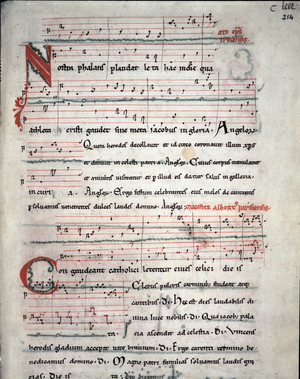 214
ato eps
Nostra phalans plaudat leta hac in die qua
athleta cristi gaudet sine meta iacobus in gloria. Angelorū
Quem herodes decollauit et id circo coronauit illum xps
et ditauit in celesti patria. Angloȝ. Cuius corpus tumulatur
et a multis uisitatur et p illud eis datur salus in gallecia.
in curia. Angloȝ. Ergo festum celebrantes eius melos decantantes
psoluamus uenerantes dulces laudes domino. Angloȝ
magister albertꝰ parisiensis
Congaudeant catholici letentur ciues celici die ista
Clerus pulcris carminibꝰ studeat atqꝫ
cantibus. Di. Hec est dies laudabilis di
uina luce nobilis. Di. Qua iacobꝰ pala
cia ascendit ad celestia. Di. Vincens
herodis gladium accepit uite brauium. Di. Ergo carenti termino be
nedicamus domino. Di. Magno patri familias soluamus laudis gra
cias. Die ista